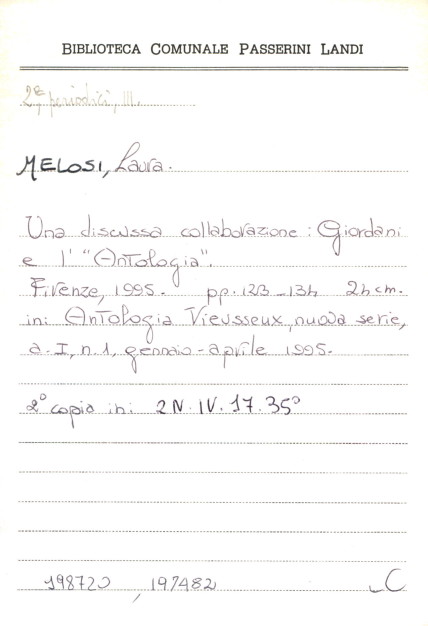 BIBLIOTECA COMUNALE PASSERINI LANDI
2E periodici, III.
MELOSI, Laura.
Una discussa collaborazione: Giordani
e l' "Antologia".
Firenze, 1995. pp. 123-134 24 cm.
in: Antologia Vieusseux, nuova serie,
a. I, n. 1, gennaio-aprile 1995.
2° copia in: 2 N. IV. 17. 35°
198720, 197482 C